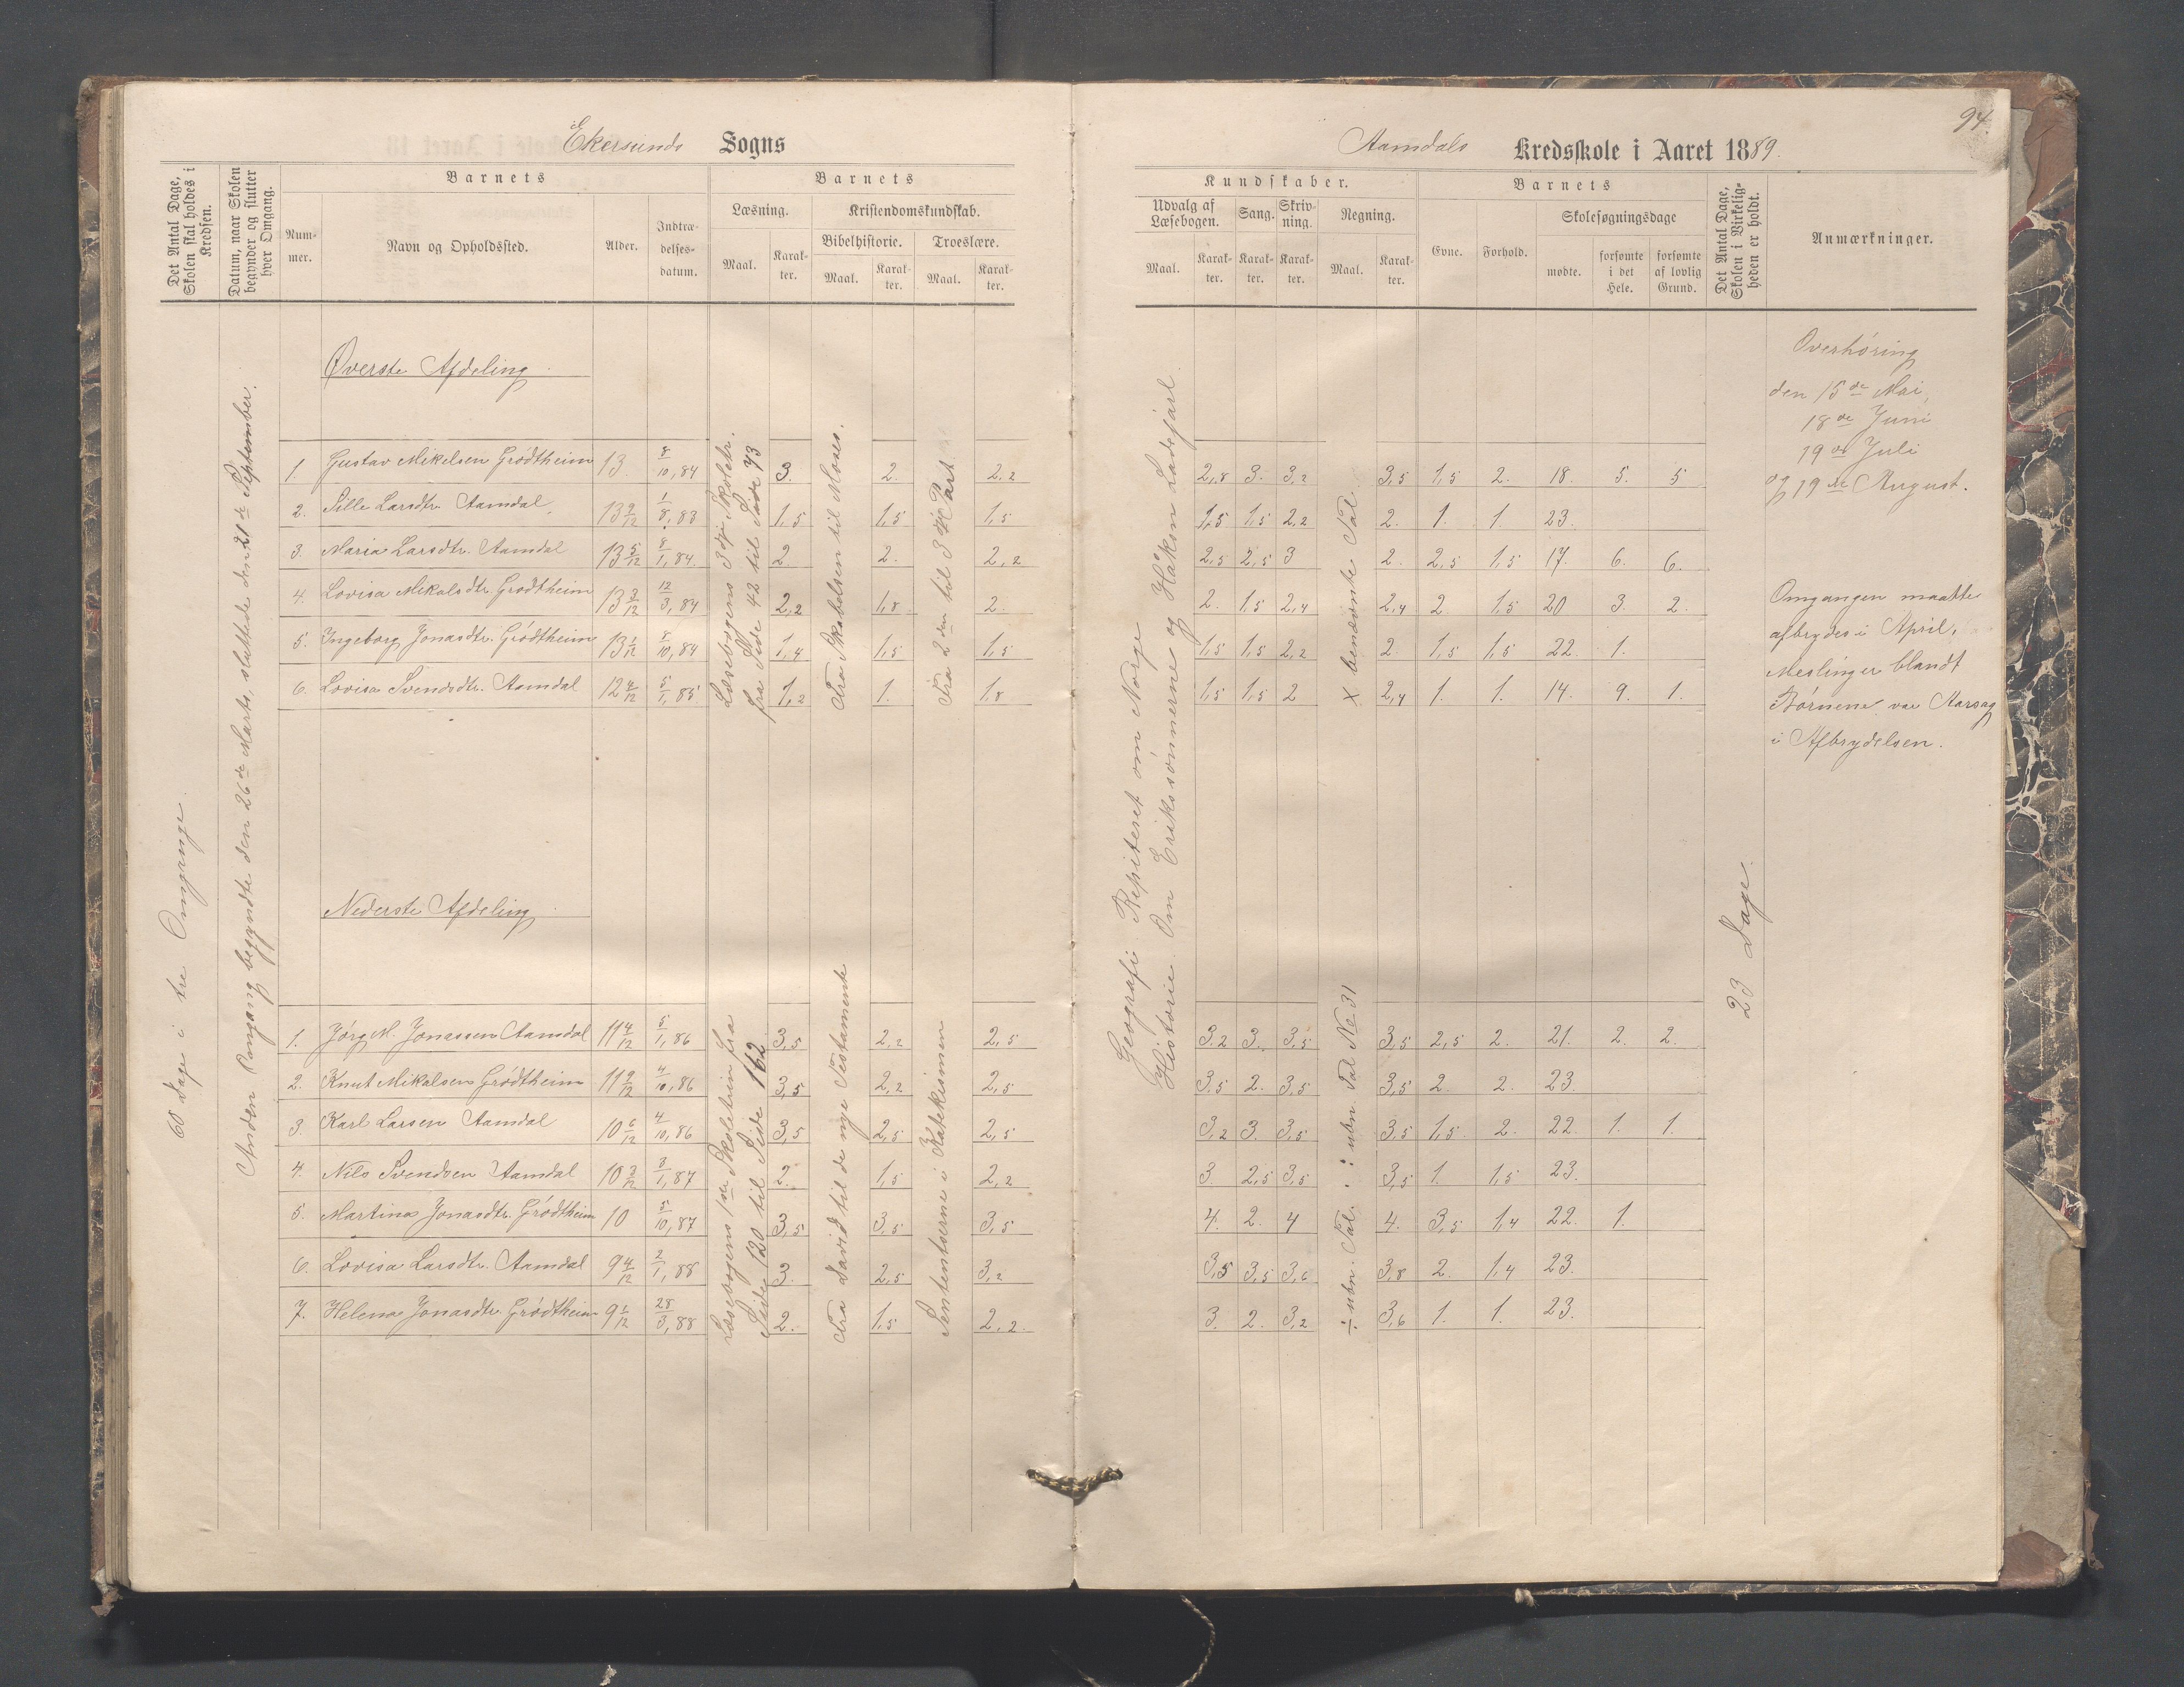 94.
Ekersunds Sogns
Aamdals Kredsskole i Aaret 1889.
Det Antal Dage, Skolen skal holdes i Kredsen.
Datum, naar Skolen begynder og slutter hver Omgang.
Barnets
Barnets
Kundskaber.
Barnets
Det Antal Dage, Skolen i Virkeligheden er holdt.
Anmærkninger.
Nummer.
Navn og Opholdssted.
Alder.
Indtrædelsesdatum.
Læsning.
Kristendomskundskab.
Maal.
Karakter.
Bibelhistorie.
Troeslære.
Maal.
Karakter.
Maal.
Karakter.
Udvalg af Læsebogen.
Sang.
Skrivning.
Regning.
Maal.
Karakter.
Karakter.
Karakter.
Maal.
Karakter.
Evne.
Forhold.
Skolesøgningsdage
mødte.
forsømte i det Hele.
forsømte af lovlig Grund.
60 Dage i tre Omgange.
Anden Omgang begyndte den 26de Marts, sluttede den 21de September.
Øverste Afdeling.
1. Gustav Mikelsen Grödtheim 13. 8/10, 84 3. 2. 2,2 2,8 3. 3,2 3,5 1,5 2. 18. 5. 5
2. Sille Larsdtr. Aamdal, 13 9/12 1/8, 83 1,5 1,5 1,5 1,5 1,5 2,2 2. 1. 1. 23.
3. Maria Larsdtr. Aamdal 13 5/12 8/1, 84. 2. 2. 2,2 2,5 2,5 3 2. 2,5 1,5 17. 6. 6.
4. Lovisa Mikalsdtr. Grödtheim 13 3/12 12/3, 84 2,2 1,8 2. 2. 1,5 2,4 2,4 2. 1,5 20 3. 2.
5. Ingeborg Jonasdtr. Grödtheim 13 1/12 8/10, 84 1,4 1,5 1,5 1,5 1,5 2,2 2. 1,5 1,5 22. 1.
6. Lovisa Svendsdtr. Aamdal 12 4/12 5/1, 85. 1,2 1. 1,8 1,5 1,5 2 2,4 1. 1. 14. 9. 1.
Læsebogens 3dje Skoletr.
fra Side 42 til Side 73
Fra Skabelsen til Moses.
Fra 2den til 3die Part
Geografi Repiteret om Norge
Historie. Om Erikssönnerne og Håkon Ladejarl.
X benævnte Tal
Nederste Afdeling.
1. Jörg M. Jonassen Aamdal 11 4/12 5/1, 86 3,5 2,2 2,5 3.2 3. 3,5 3,5 2,5 2. 21. 2. 2.
2. Knut Mikalsen Grödtheim 11 9/12 4/10, 86 3,5 2,2 2,5 3.5 2. 3,5 3,5 2. 2. 23.
3. Karl Larsen Aamdal 10 6/12 4/10, 86 3,5 2,5 2,5 3,2 3. 3,5 3,5 1,5. 2. 22. 1. 1.
4. Nils Svendsen Aamdal 10 3/12 3/1, 87 2. 1,5 2,2 3. 2,5 3,5 3,5 1. 1,5 23.
5. Martina Jonasdtr. Grödtheim 10 5/10, 87 3,5 3,5 3,5 4. 2. 4 4. 3,5 1,4 22. 1.
6. Lovisa Larsdtr. Aamdal 9 4/12 2/1, 88 3. 2,5 3,2 3,5 3,5 3,6 3,8 2. 1,4 23.
7. Helena Jonasdtr. Grödtheim 9 1/12 28/3, 88 2. 1,5 2,2. 3. 2. 3,2 3,6 1. 1. 23.
Læsebogens 1ste Skoletrin fra
Side 120 til Side 162
Fra David til de nye Testamente
Sententserne i Katekismen
÷ ubn. Tal. : ubn. Tal No 31
23 Dage.
Overhöring
den 15de Mai,
18de Juni
19de Juli
og 19de August.
Omgangen maatte
afbrydes i April,
Meslinger blandt
Börnene var Aarsag
i Afbrydelsen.